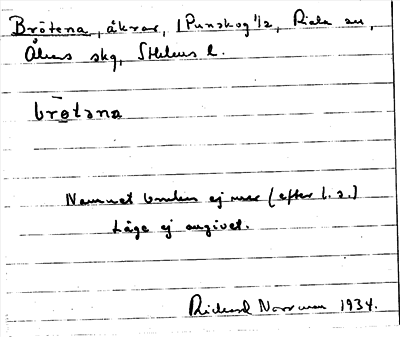 Brötena, åkrar, 1 Punskog 1/2, Riala sn,
Åkers skg, Sthlms l.
brøtəna
Namnet brukas ej mer (efter l. s.)
Läge ej angivet.
Rickard Norrman 1934.